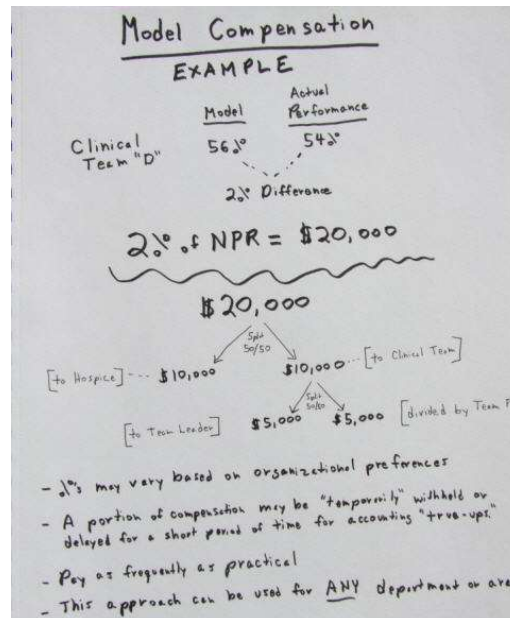 Model Compensation
EXAMPLE
Model Actual Performance
Clinical Team "D" 56% 54%
2% Difference
2% of NPR = $20,000
$20,000
Split 50/50
[to Hospice] --- $10,000 $10,000 --- [to Clinical Team]
Split 50/50
[to Team Leader] $5,000 $5,000 [divided by Team
- %'s may vary based on organizational preferences
- A portion of compensation may be "temporarily" withheld or
delayed for a short period of time for accounting "true-ups."
- Pay as frequently as practical
- This approach can be used for ANY department or are